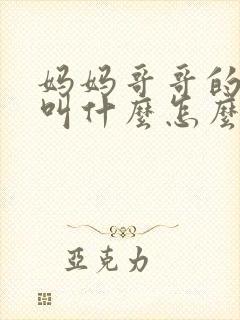 妈妈哥哥的
叫什麼怎麼
亞克力